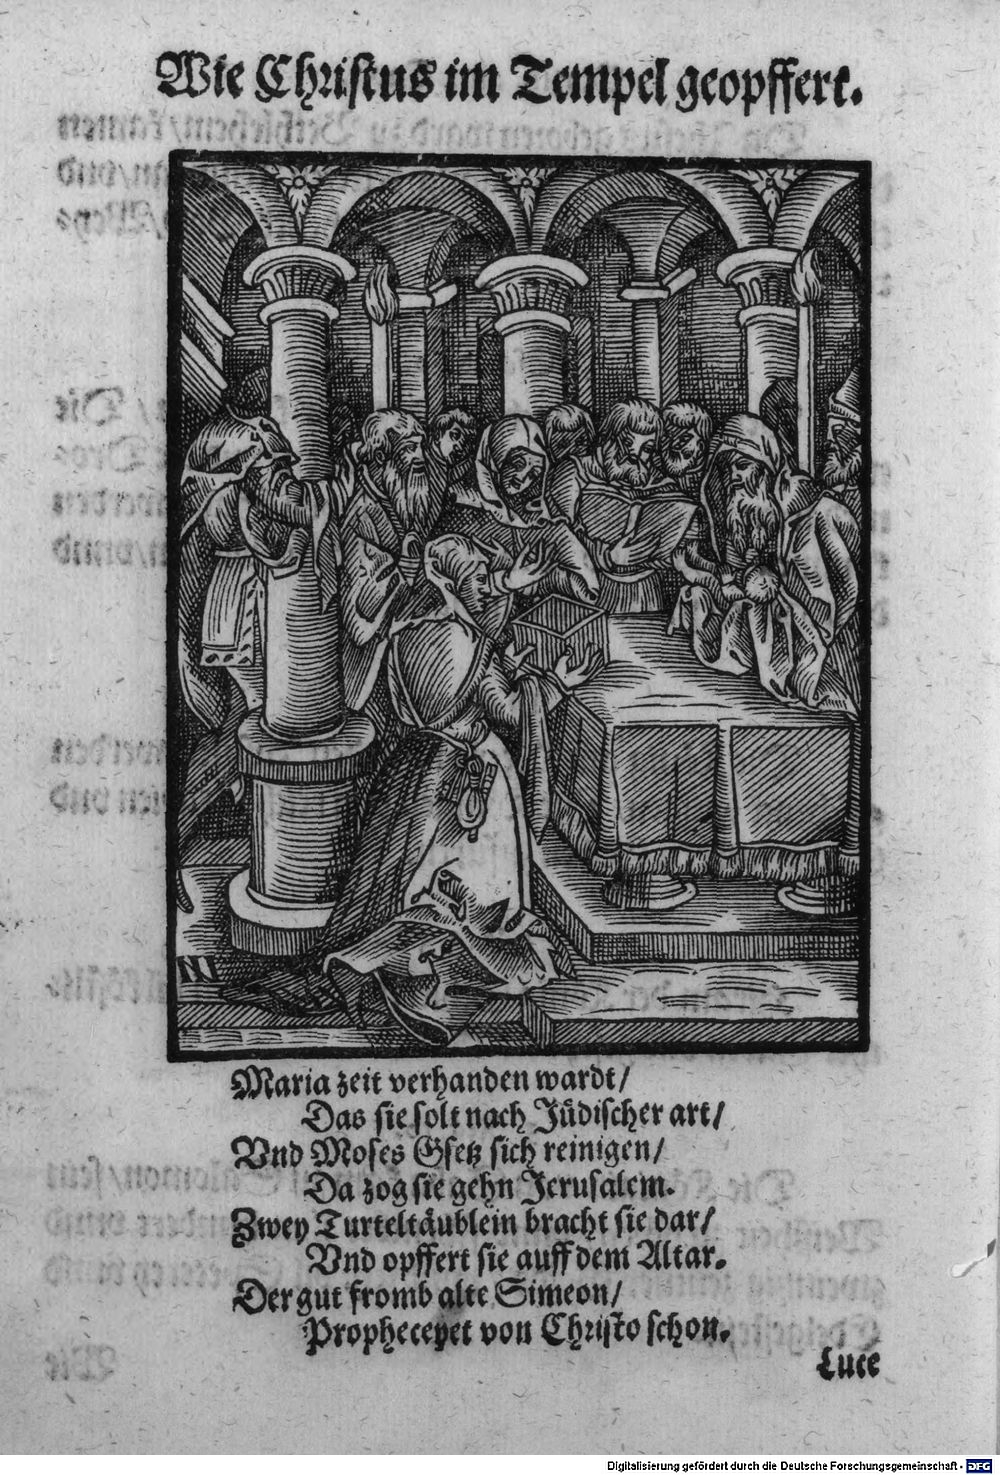 Wie Christus im Tempel geopffert.
Maria zeit verhanden wardt/
Das sie solt nach Jüdischer art/
Vnd Moses Gsetz sich reinigen/
Da zog sie gehn Jerusalem.
Zwey Turteltäublein bracht sie dar/
Vnd opffert sie auff dem Altar.
Der gut fromb alte Simeon/
Propheceyet von Christo schon.
Luce
Digitalisierung gefördert durch die Deutsche Forschungsgemeinschaft - DFG